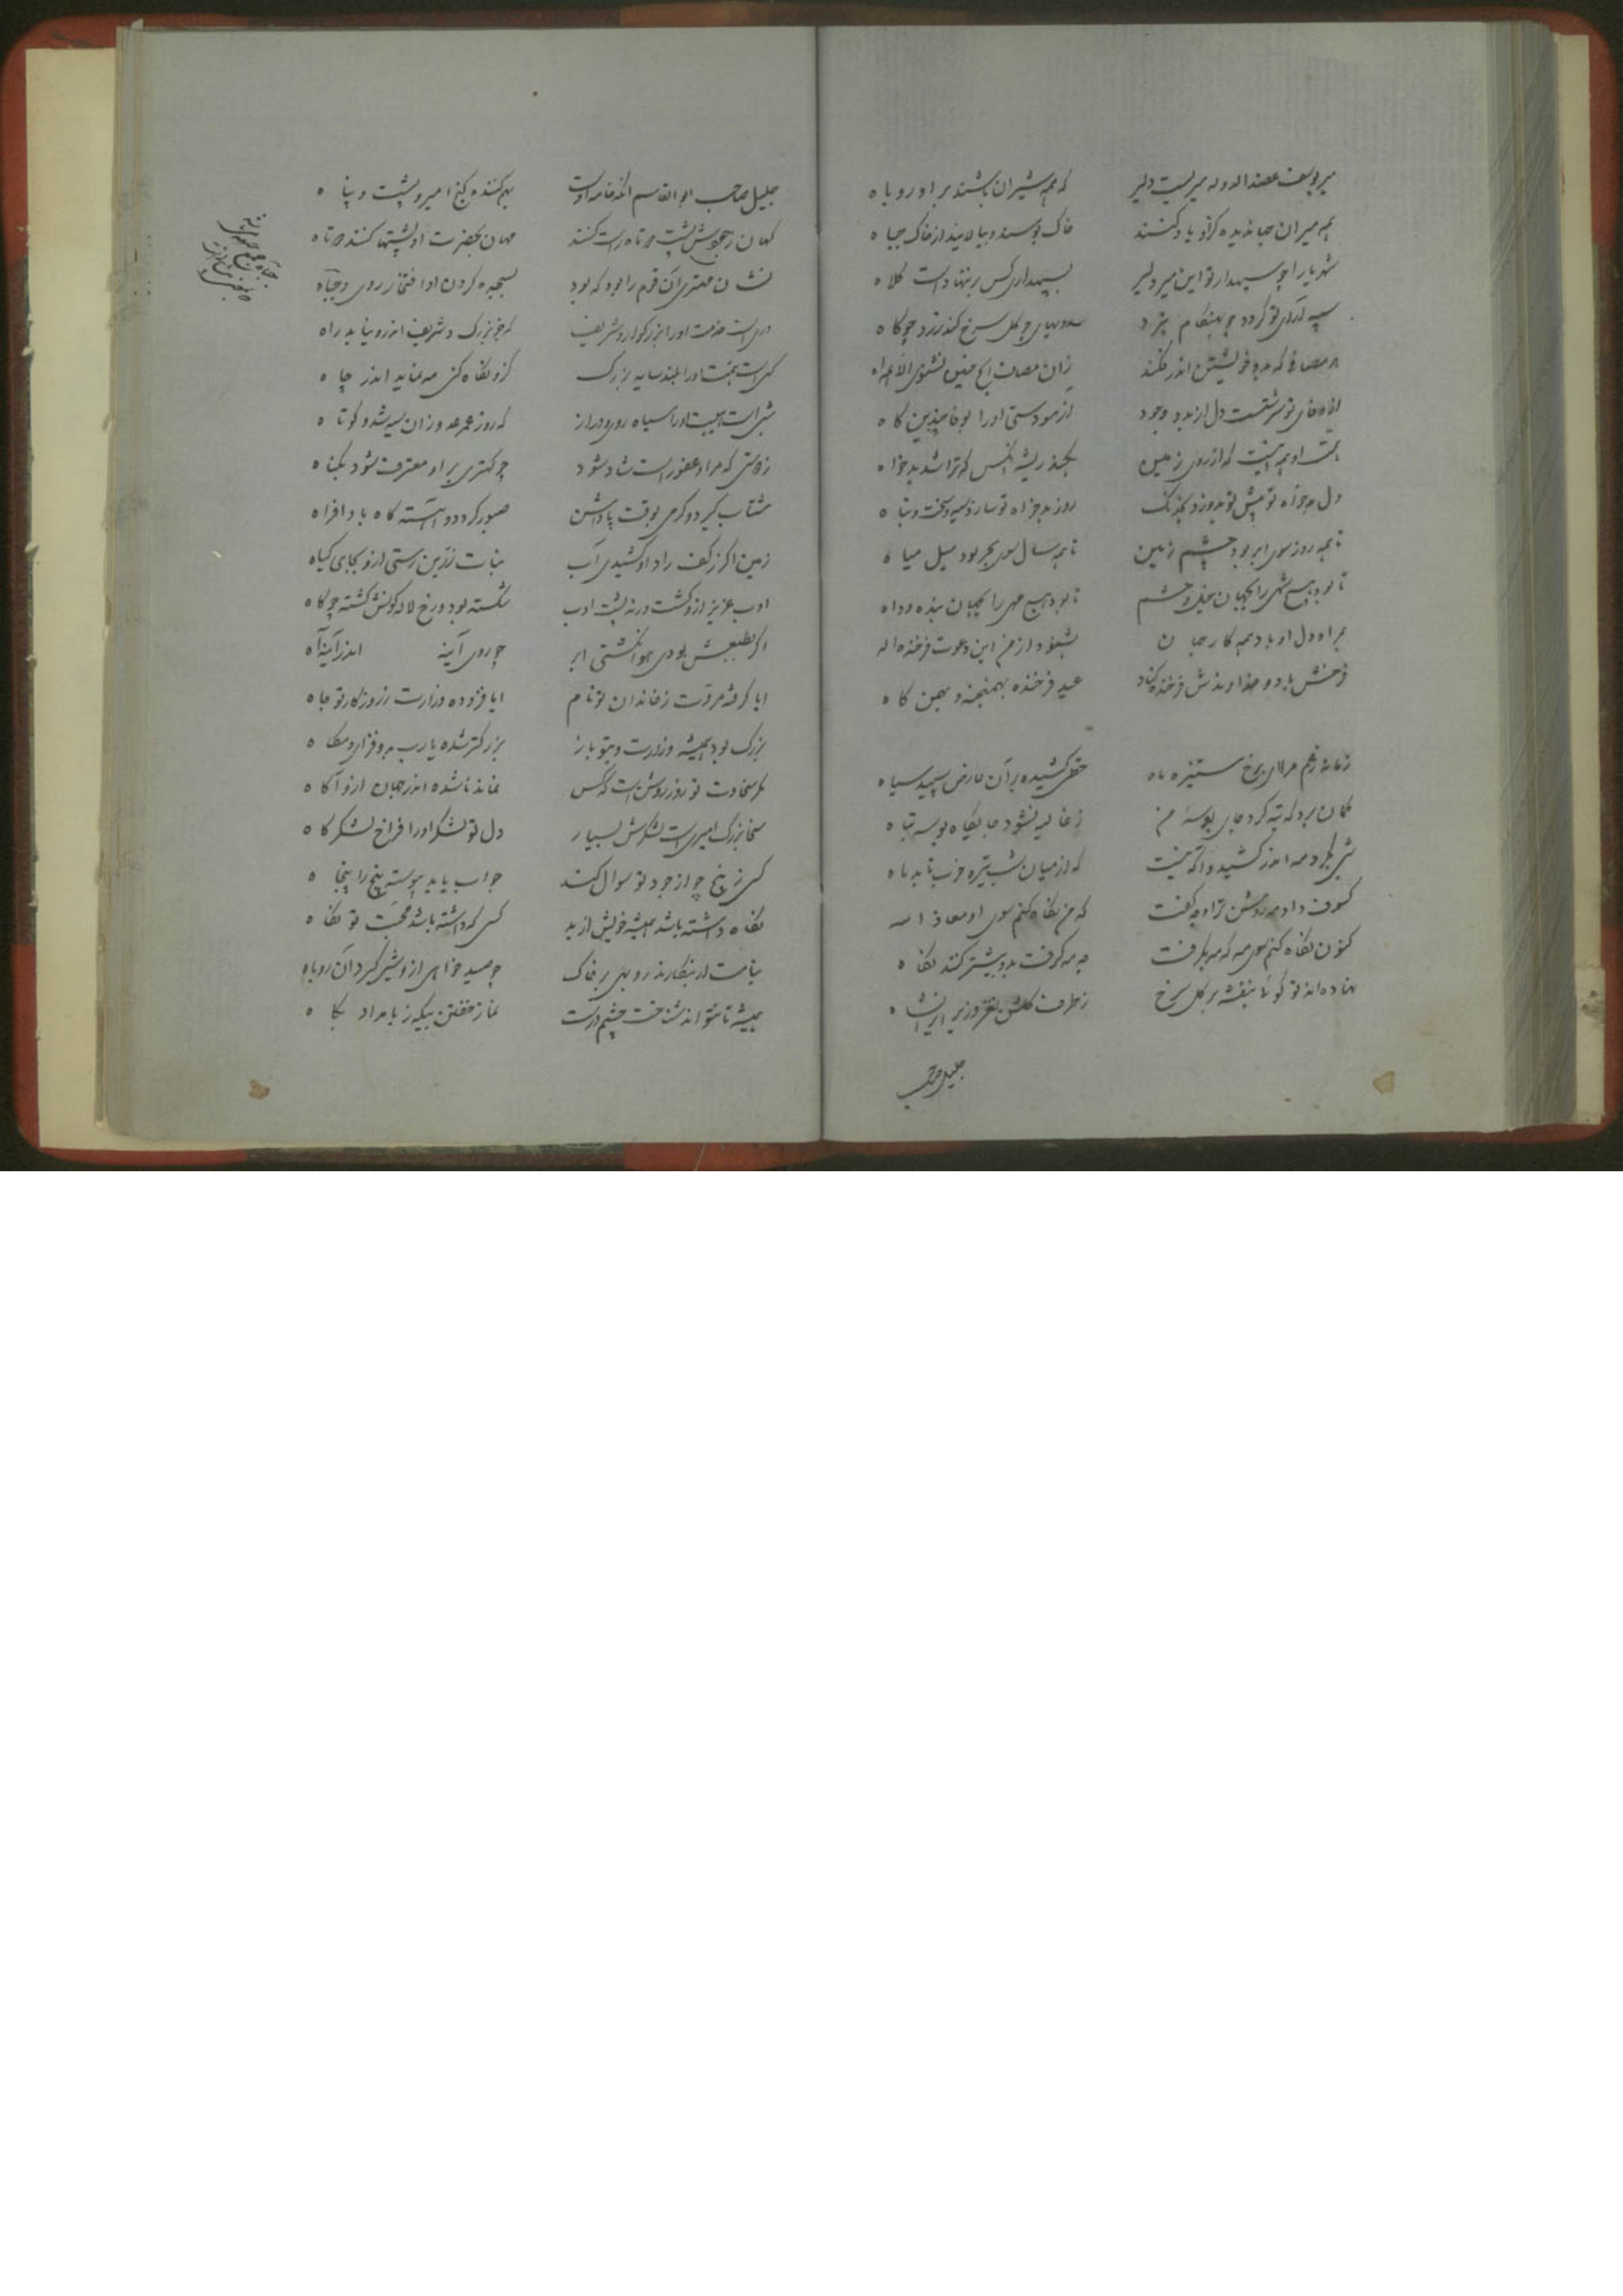 میر یوسف عضد الدوله میریست دلیر که همه شیران باشند بر او روباه
همه میران جهاندیده کزو یاد کنند خاک بوسند و بیالایند از خاک جباه
شهریارا چو سپهدار تو این میر دلیر بسپهداری کس بر ننهادست کلاه
سپه آرای تو کردد چو بهنکام نبرد رویهای چو کل سرخ کند زرد چو کاه
در مصافی که درو خویشتن اندر فکند زان مصاف ایچ سخن نشنوی الا
دل از بدو وجود ازمودستی او را بوفا چندین کاه
او همه آنست که از روی زمین بکند ریشه آنکس که ترا شد بدخواه
دل بدخواه تو پیش تو بدوزد بخدنک روز بدخواه تو سازد سیه و سخت و تباه
تا همه روز سوی ابر بود چشم زمین تا همه سال سوی بحر بود میل میاه
تا بود هیچ شهی را بجهان خیل و حشم تا بود هیچ مهی را بجهان بنده و داه
بمراد دل او باد همه کار جهان بشنواد از من این دعوت فرخنده اله
فرخش باد و خداوندش فرخنده کناد عید فرخنده بهمنجنه و بهمن ماه
زمانه رغم مرا ای برخ ستیزه ماه خطی کشیده بر آن عارض سپید سیاه
کمان برد که تبه کرد جای بوسه من ز غالیه نشود جایکاه بوسه تباه
شبی بکرد مه اندر کشید و آکه نیست که از میان شب تیره خوب تابد ماه
کسوف داد مه روشن ترا و چه کفت که من نکاه کنم سوی او معاذ الله
کنون نکاه کنم سوی مه که مه بکرفت چو مه کرفت بدو بیشتر کنند نکاه
نهاده اند تو کوئی بنفشه بر کل سرخ ز طرف کلشن بغز وزیر ایرانشاه
جلیل صاحب
جلیل صاحب ابوالقاسم آنکه خامه اوست بهم کننده کنج امیر و پشت و پناه
کهان ز جودش پشت دوتاه راست کنند مهان بحضرت او پشتها کنند دوتاه
نشان مهتری آن قوم را بود که بود بسجده کردن او افتخار روی و جباه
دریست خدمت او را بزرکوار و شریف که جز بزرک و شریف اندرو نیابد راه
کهی است همت او را بلند سایه بزرک کزو نکاه کنی مه نماید اندر چاه
شبی است هیبت او را سیاه روی و دراز که روز عمر عدو زان سیه شد و کوتاه
ز دلتی که مر او عفوراست شاد شود چو کهتری بر او معترف شود بکناه
شتاب کیرد و کرمی بوقت پاداشن صبور کردد و آهسته کاه بادافراه
زمین اکر ز کف راد او کشیدی آب نبات زرین رستی ازو بجای کیاه
ادب عزیز ازو کشت ورنه پشت ادب شکسته بود و رخ لاله کونش کشته چو کاه
اکر بطبعش بودی هوا نکشتی ابر چو روی آینه اندر آینه آه
ایا کرفته مروت ز خاندان تو نام ایا فزوده وزارت ز روزکار تو جاه
بزرک بود همیشه وزارت و بتو باز بزرکتر شده یا رب بدو فزای مکاه
مکر سخاوت تو روز روشن است که کس نماند ناشده اندر جهان ازو آکاه
سخا بزرک امیری است لشکرش بسیار دل تو لشکر او را فراخ لشکرکاه
کسی ز پنج چو از جود تو سوال کند جواب یابد پیوسته پنج را پنجاه
نکاه داشته باشد همیشه خویش از بد کسی که داشته باشد محبت تو نکاه
بنامت ار بنکارند روبهی بر خاک چو صید خواهی ازو شیر کیرد آن روباه
همیشه تا نتواند شناخت چشم درست نماز خفتن بیکه ز بامداد پکاه